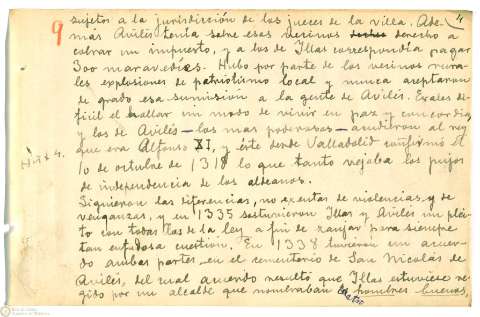 9
4
sujetos a la jurisdicción de los jueces de la villa. Ade-
más Avilés tenía sobre esos vecinos derecho a
cobrar un impuesto, y a los de Illas correspondía pagar
300 maravedíes. Hubo por parte de los vecinos rura-
les explosiones de patriotismo local y nunca aceptaron
de grado esa sumisión a la gente de Avilés. Érales di-
fícil el hallar un modo de vivir en paz y concordia,
y los de Avilés - los mas poderosos - acudieron al rey
que era Alfonso XI, y éste desde Valladolid confirmó el
10 de octubre de 1318 lo que tanto vejaba los pujos
de independencia de los aldeanos.
Siguieron las diferencias, no exentas de violencias, y de
venganzas, y en 1335 sostuvieron Illas y Avilés un plei-
to con todas las de la ley a fin de zanjar para siempre
tan enfadosa cuestión. En 1338 tuvieron un acuer-
do ambas partes, en el cementerio de San Nicolás de
Avilés, del cual acuerdo resultó que Illas estuviese re-
gido por un alcalde que nombraban hombres buenos,